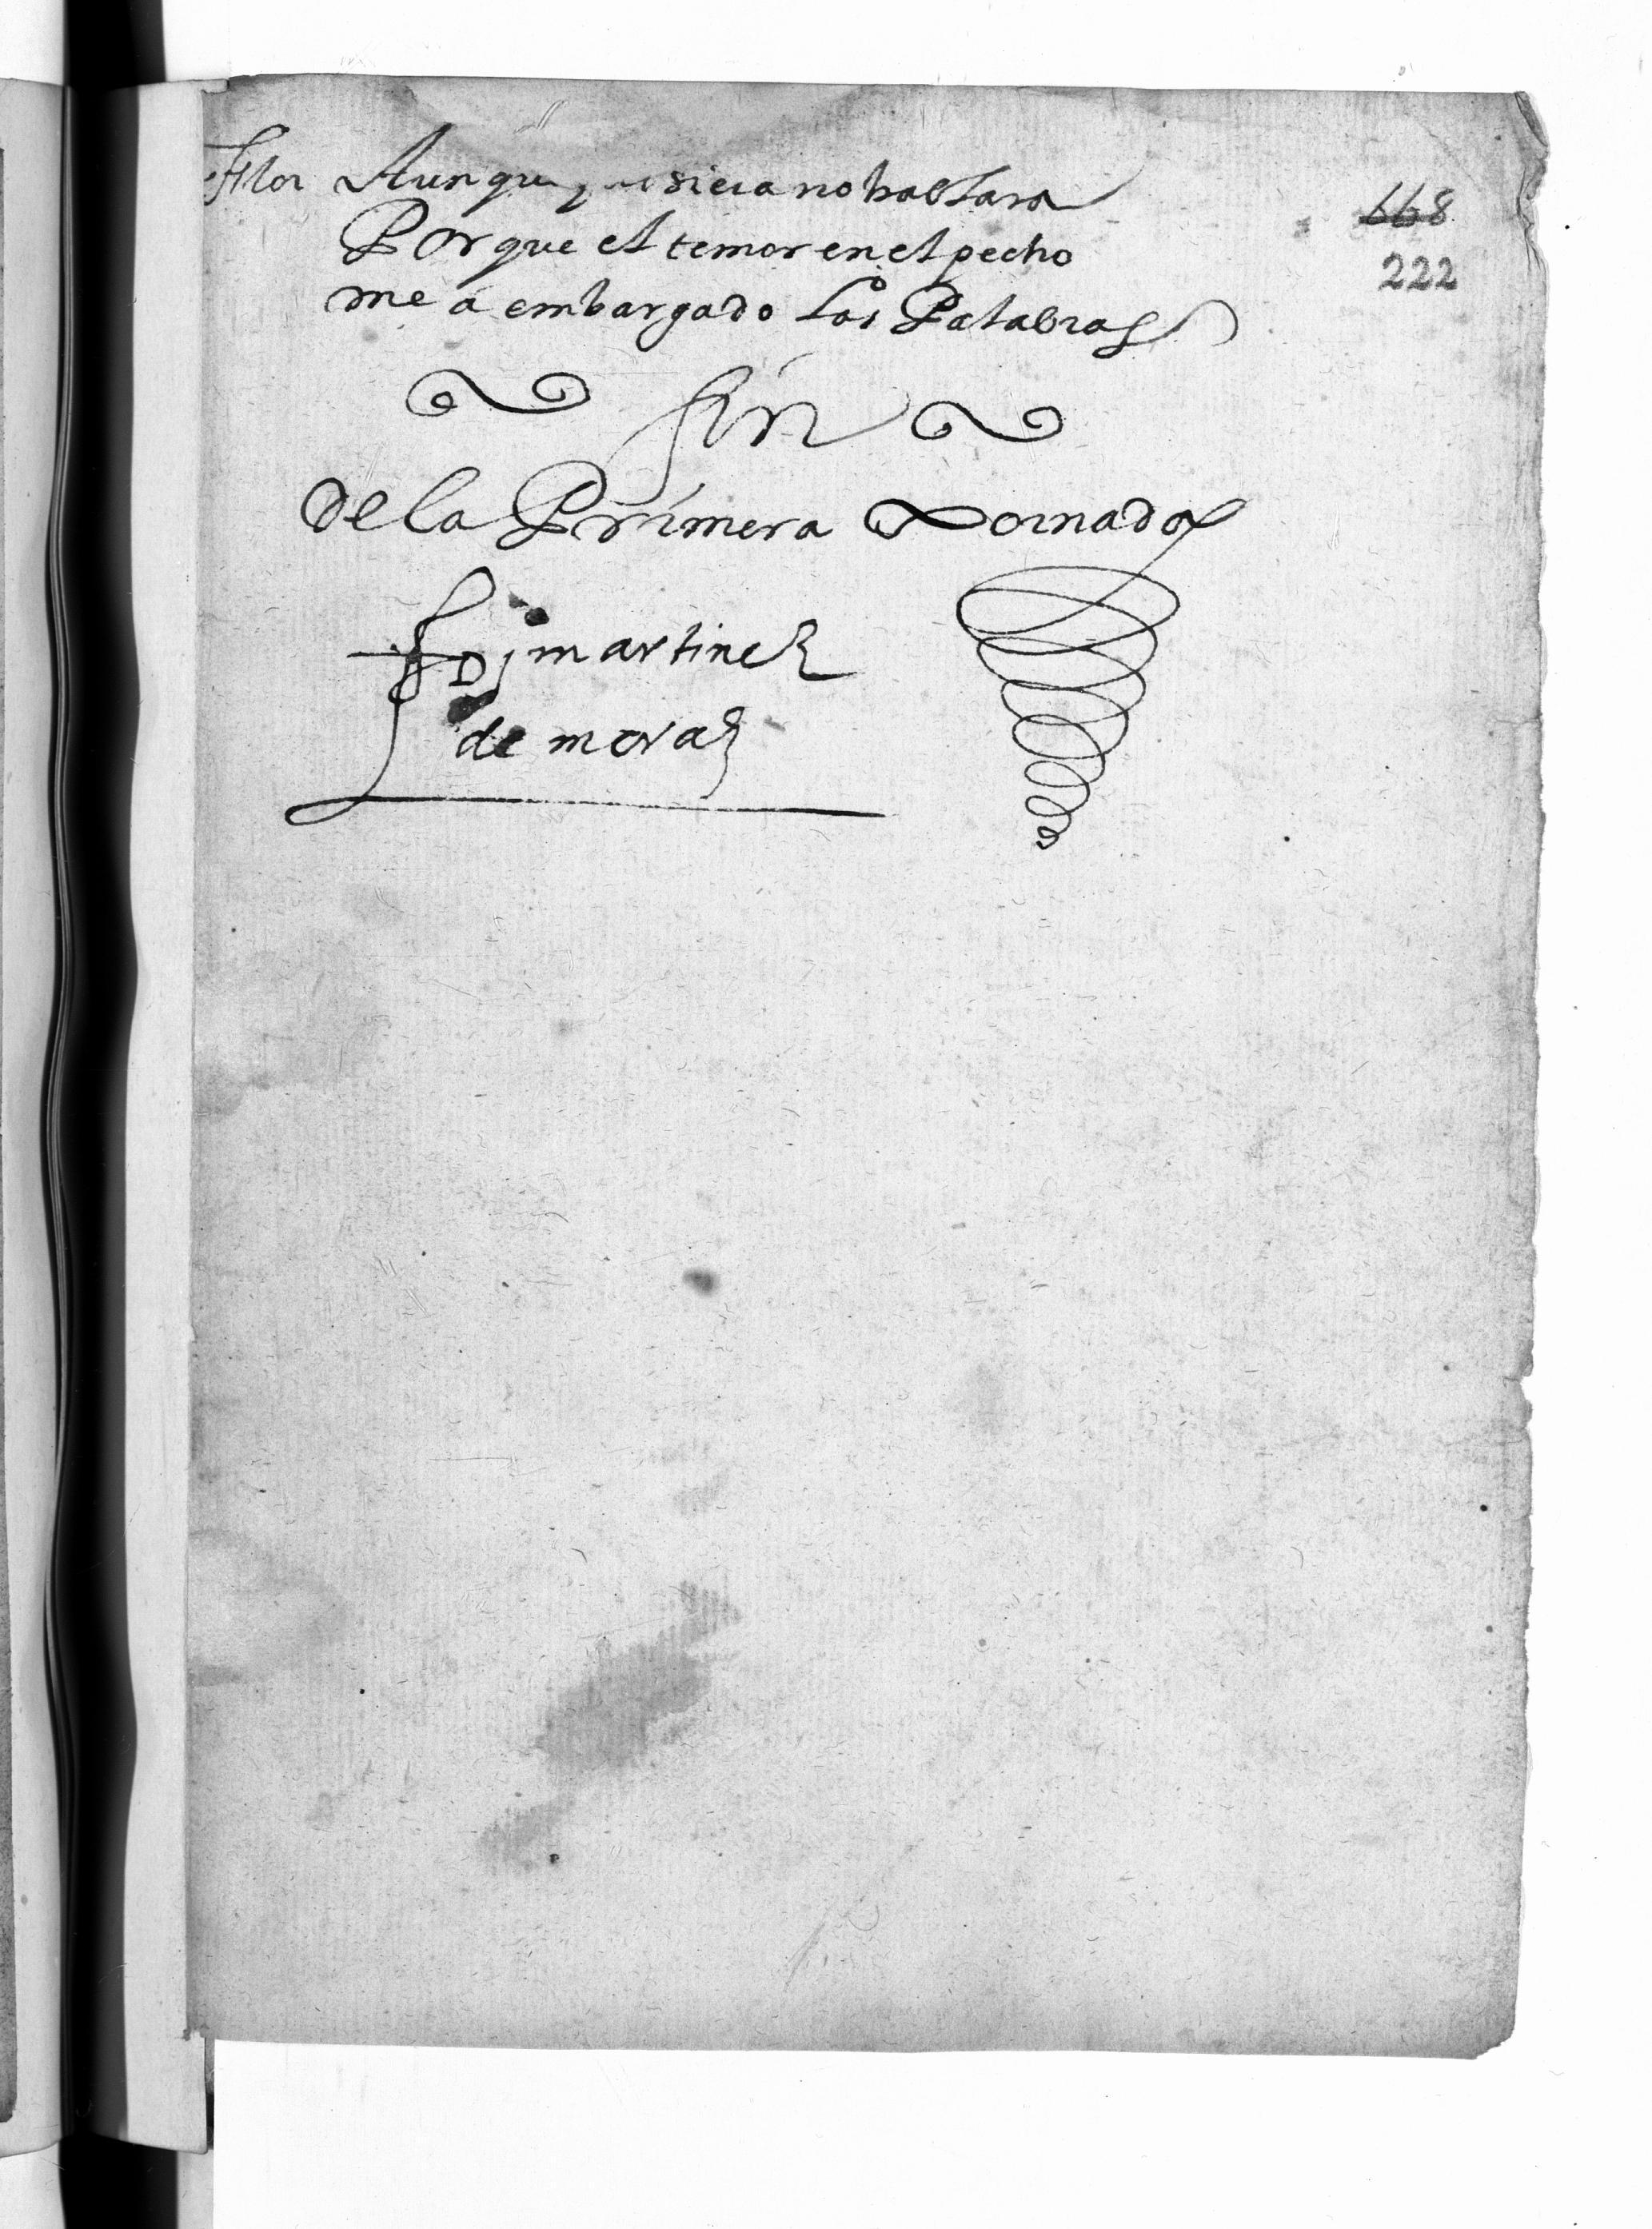 Flor Aunque quisiera no hablara
668
Por que el temor en el pecho
222
me a embargado las Palabras
fin
de la Primera Jornada
martinez
de mora